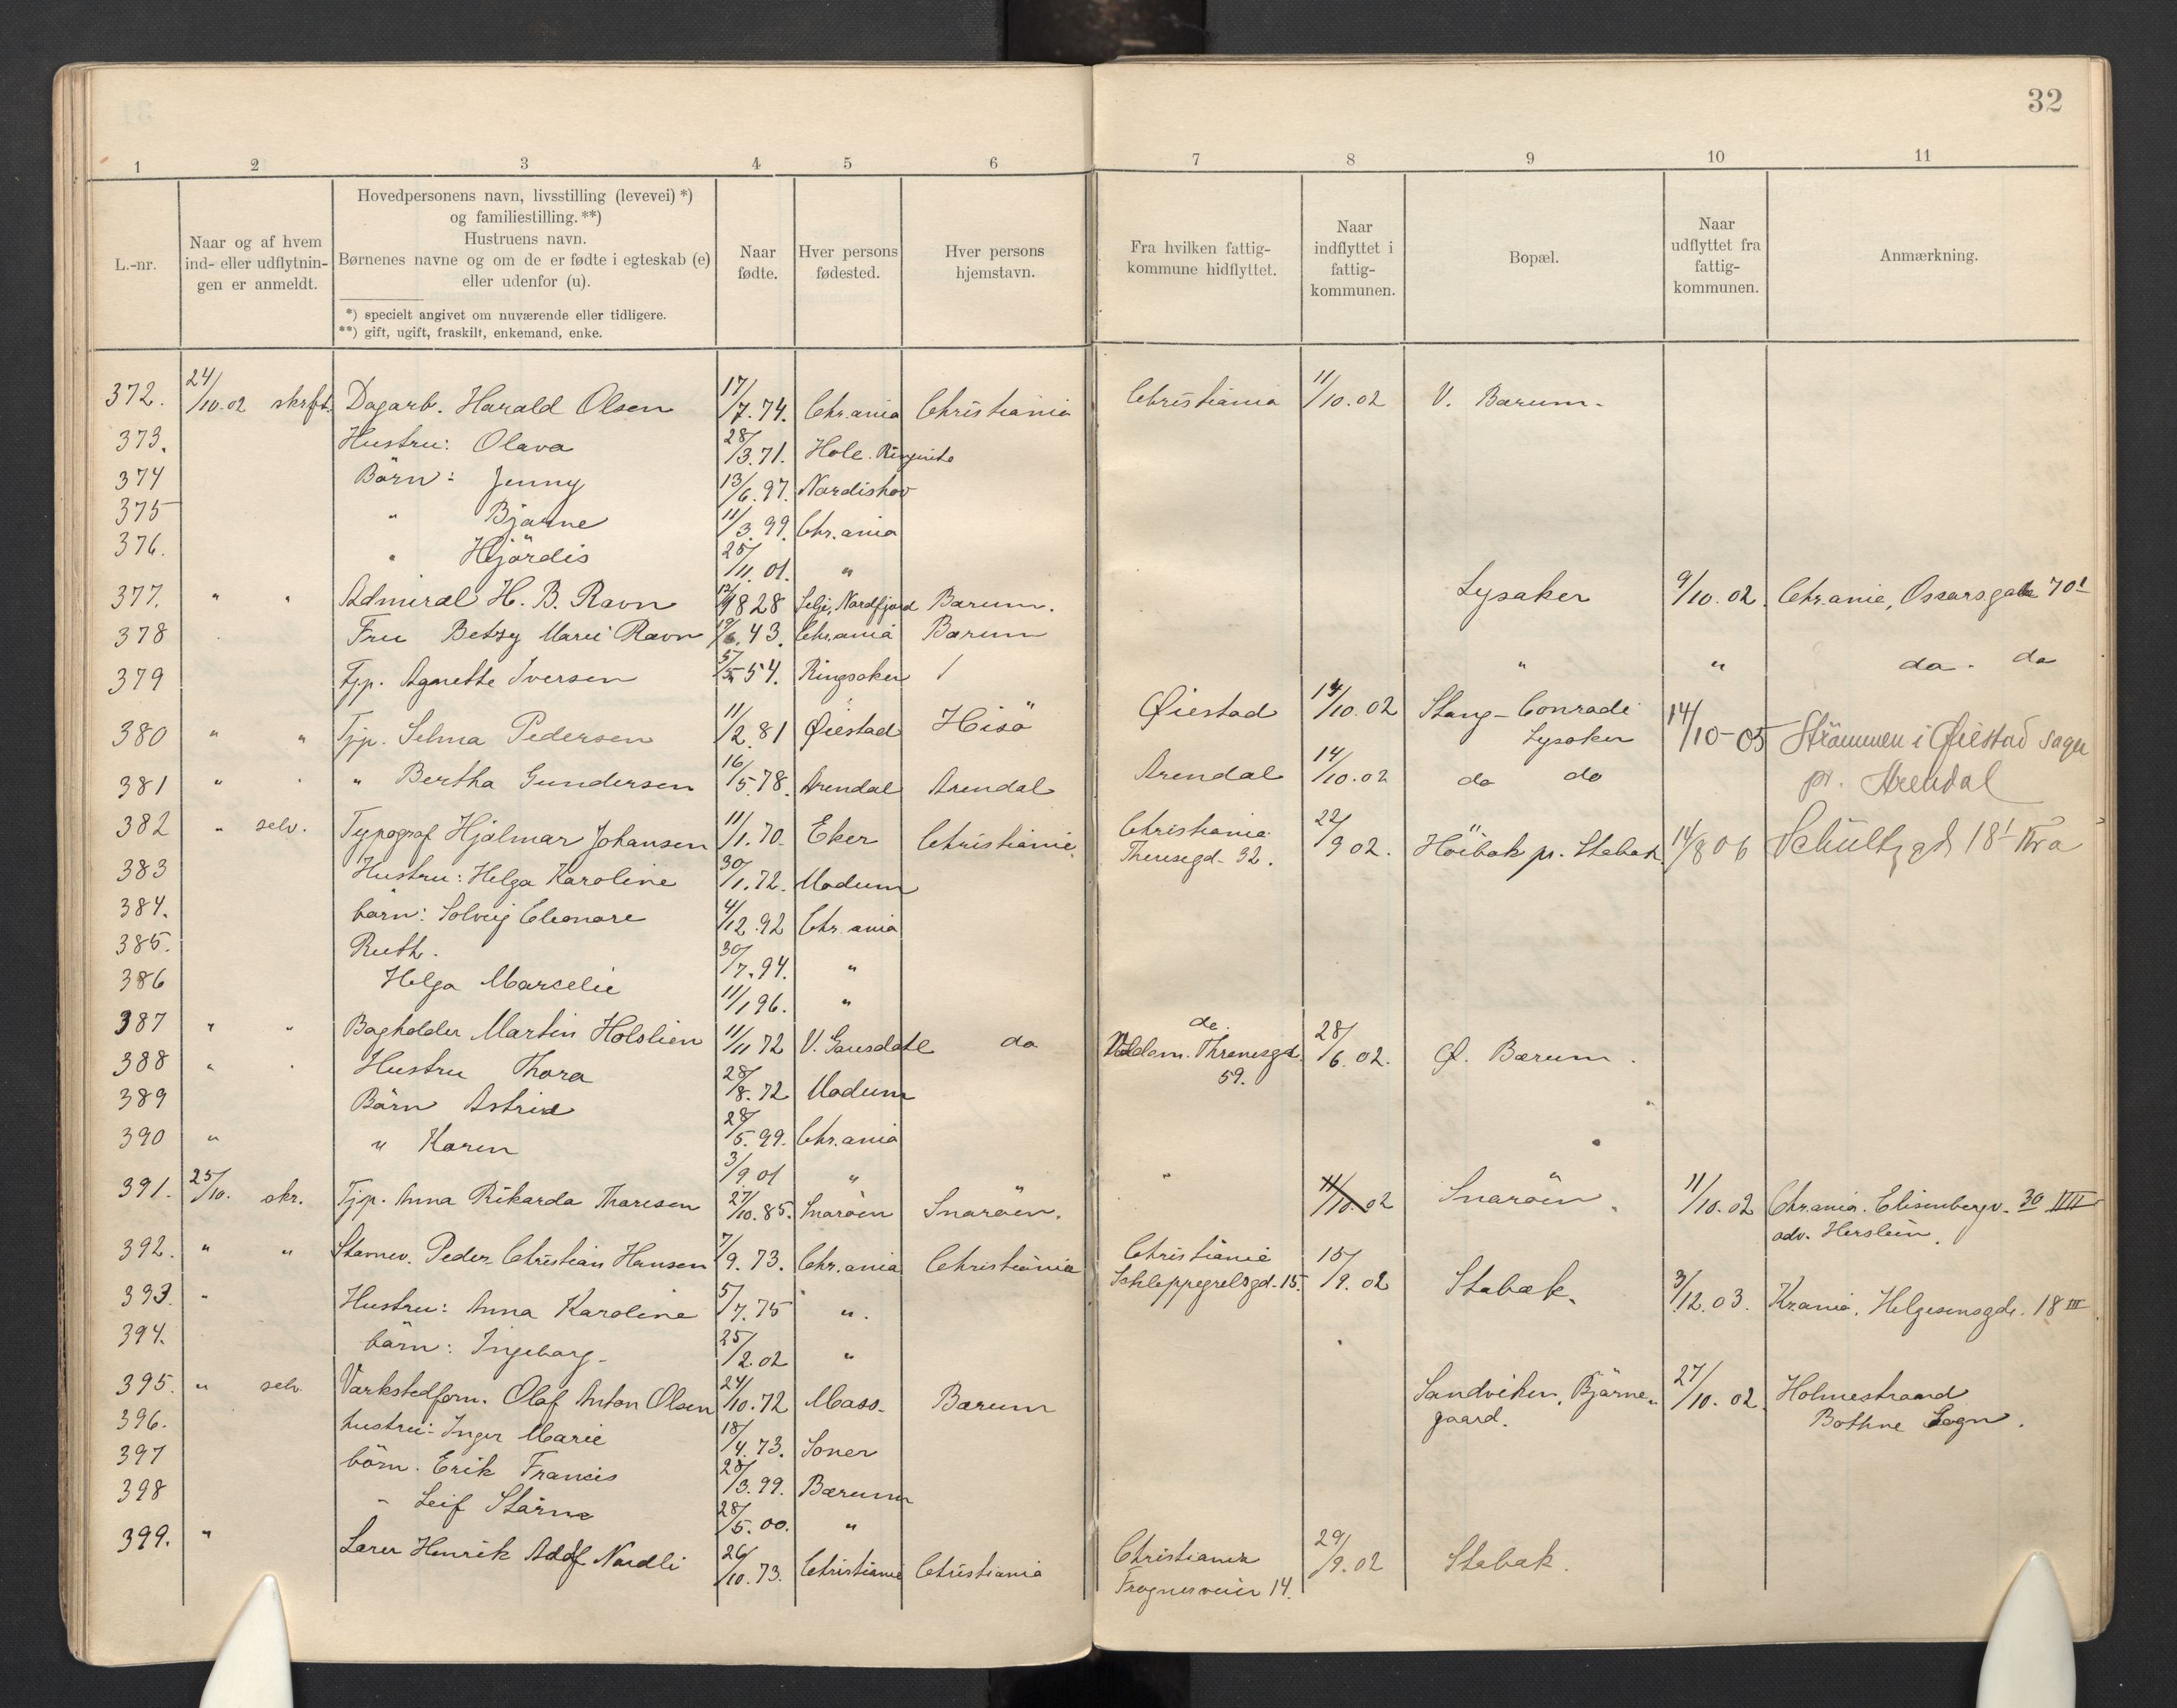 32
1 2 3 4 5 6 7 8 9 10 11
L.-nr.
Naar og af hvem
ind- eller udflytnin-
gen er anmeldt.
Hovedpersonens navn, livsstilling (levevei) *)
og familiestilling. **)
Hustruens navn.
Børnenes navne og om de er fødte i egteskab (e)
eller udenfor (u).
*) specielt angivet om nuværende eller tidligere.
**) gift, ugift, fraskilt, enkemand, enke.
Naar
fødte.
Hver persons
fødested.
Hver persons
hjemstavn.
Fra hvilken fattig-
kommune hidflyttet.
Naar
indflyttet i
fattig-
kommunen.
Bopæl.
Naar
udflyttet fra
fattig-
kommunen.
Anmærkning.
372. 24/10.02 skrftl. Dagarb. Harald Olsen 17/7.74. Chr.ania Christiania Christiania 11/10.02 V. Bærum.
373. Hustru: Olava 28/3.71. Hole. Ringerike
374 Börn: Jenny 13/6.97. Nordishov
375 " Bjarne 11/3.99. Chr.ania
376. " Hjördis 25/11.01. "
377. " " Admiral H. B. Ravn 828 Selje, Nordfjord Bærum. Lysaker 9/10.02. Chr.ania, Oscarsgade 70 I
378 Fru Betzy Marie Ravn 43. Chr.ania Bærum
379 Tjp. Agnette Iversen 5/5 54. Ringsaker / " " do. do
380 " " Tjp. Selma Pedersen 11/2.81 Øiestad Hisö Øiestad 14/10.02 Stang-Conradi
Lysaker 14/10-05 Strömmen i Øiestad sogn
381 " " " Bertha Gundersen 16/5.78. Arendal Arendal Arendal 14/10.02 do do pr. Arendal
382 " selv. Typograf Hjalmar Johansen 11/1.70. Eker Christiania Christiania
Theresegd. 32. 22/9 02. Höibak pr. Stabæk 14/8 06 Schultzgd 18
383 Hustru: Helga Karoline 30/1.72. Modum
384. barn: Solveig Eleonore 4/12.92 Chr.ania
385. Ruth. 30/7.94. "
386 Helga Marcelie 11/1 96. "
387 " " Bogholder Martin Holslien 11/11 72 V. Gausdal do do.
Thranesgd.
59. 28/6.02. Ø. Bærum.
388 " " Hustru Thora 28/8.72 Modum
389 Börn Astrid 28/5.99. Chr.ania
390 " " Karen 3/9.01 "
391. 25/10. skr. Tjp. Anna Rikarda Thoresen 27/10.85. Snaröen Snaröen. " 11/10.02 Snaröen. 11/10.02 Chr.ania. Elisenbergv. 30 IIII
adv. Herslein.
392. " " Peder Christian Hansen 7/9.73. Chr.ania Christiania Christiania
Schleppegrelsgd. 15. 15/9.02 Stabæk.
393. " Hustru: Anna Karoline 5/7.75 " 3/12.03. Krania, Helgesensgde. 18 III
394. barn: Ingeborg. 25/2.02 "
395. " selv. Værkstedform. Olaf Anton Olsen 24/10.72 Moss. Bærum Sandviken, Bjærne-
gaard. 27/10.02. Holmestrand
Bothne Sogn.
396. hustru: Inger Marie 18/4.73. Soner
397 börn. Erik Francis 28/3.99. Bærum
398 " Leif Stärne 28/5.00. "
399. " Lærer Henrik Adolf Nordli 26/10.73. Christiania Christiania Christiania
Frognerveien 14. 29/9.02 Stabæk.